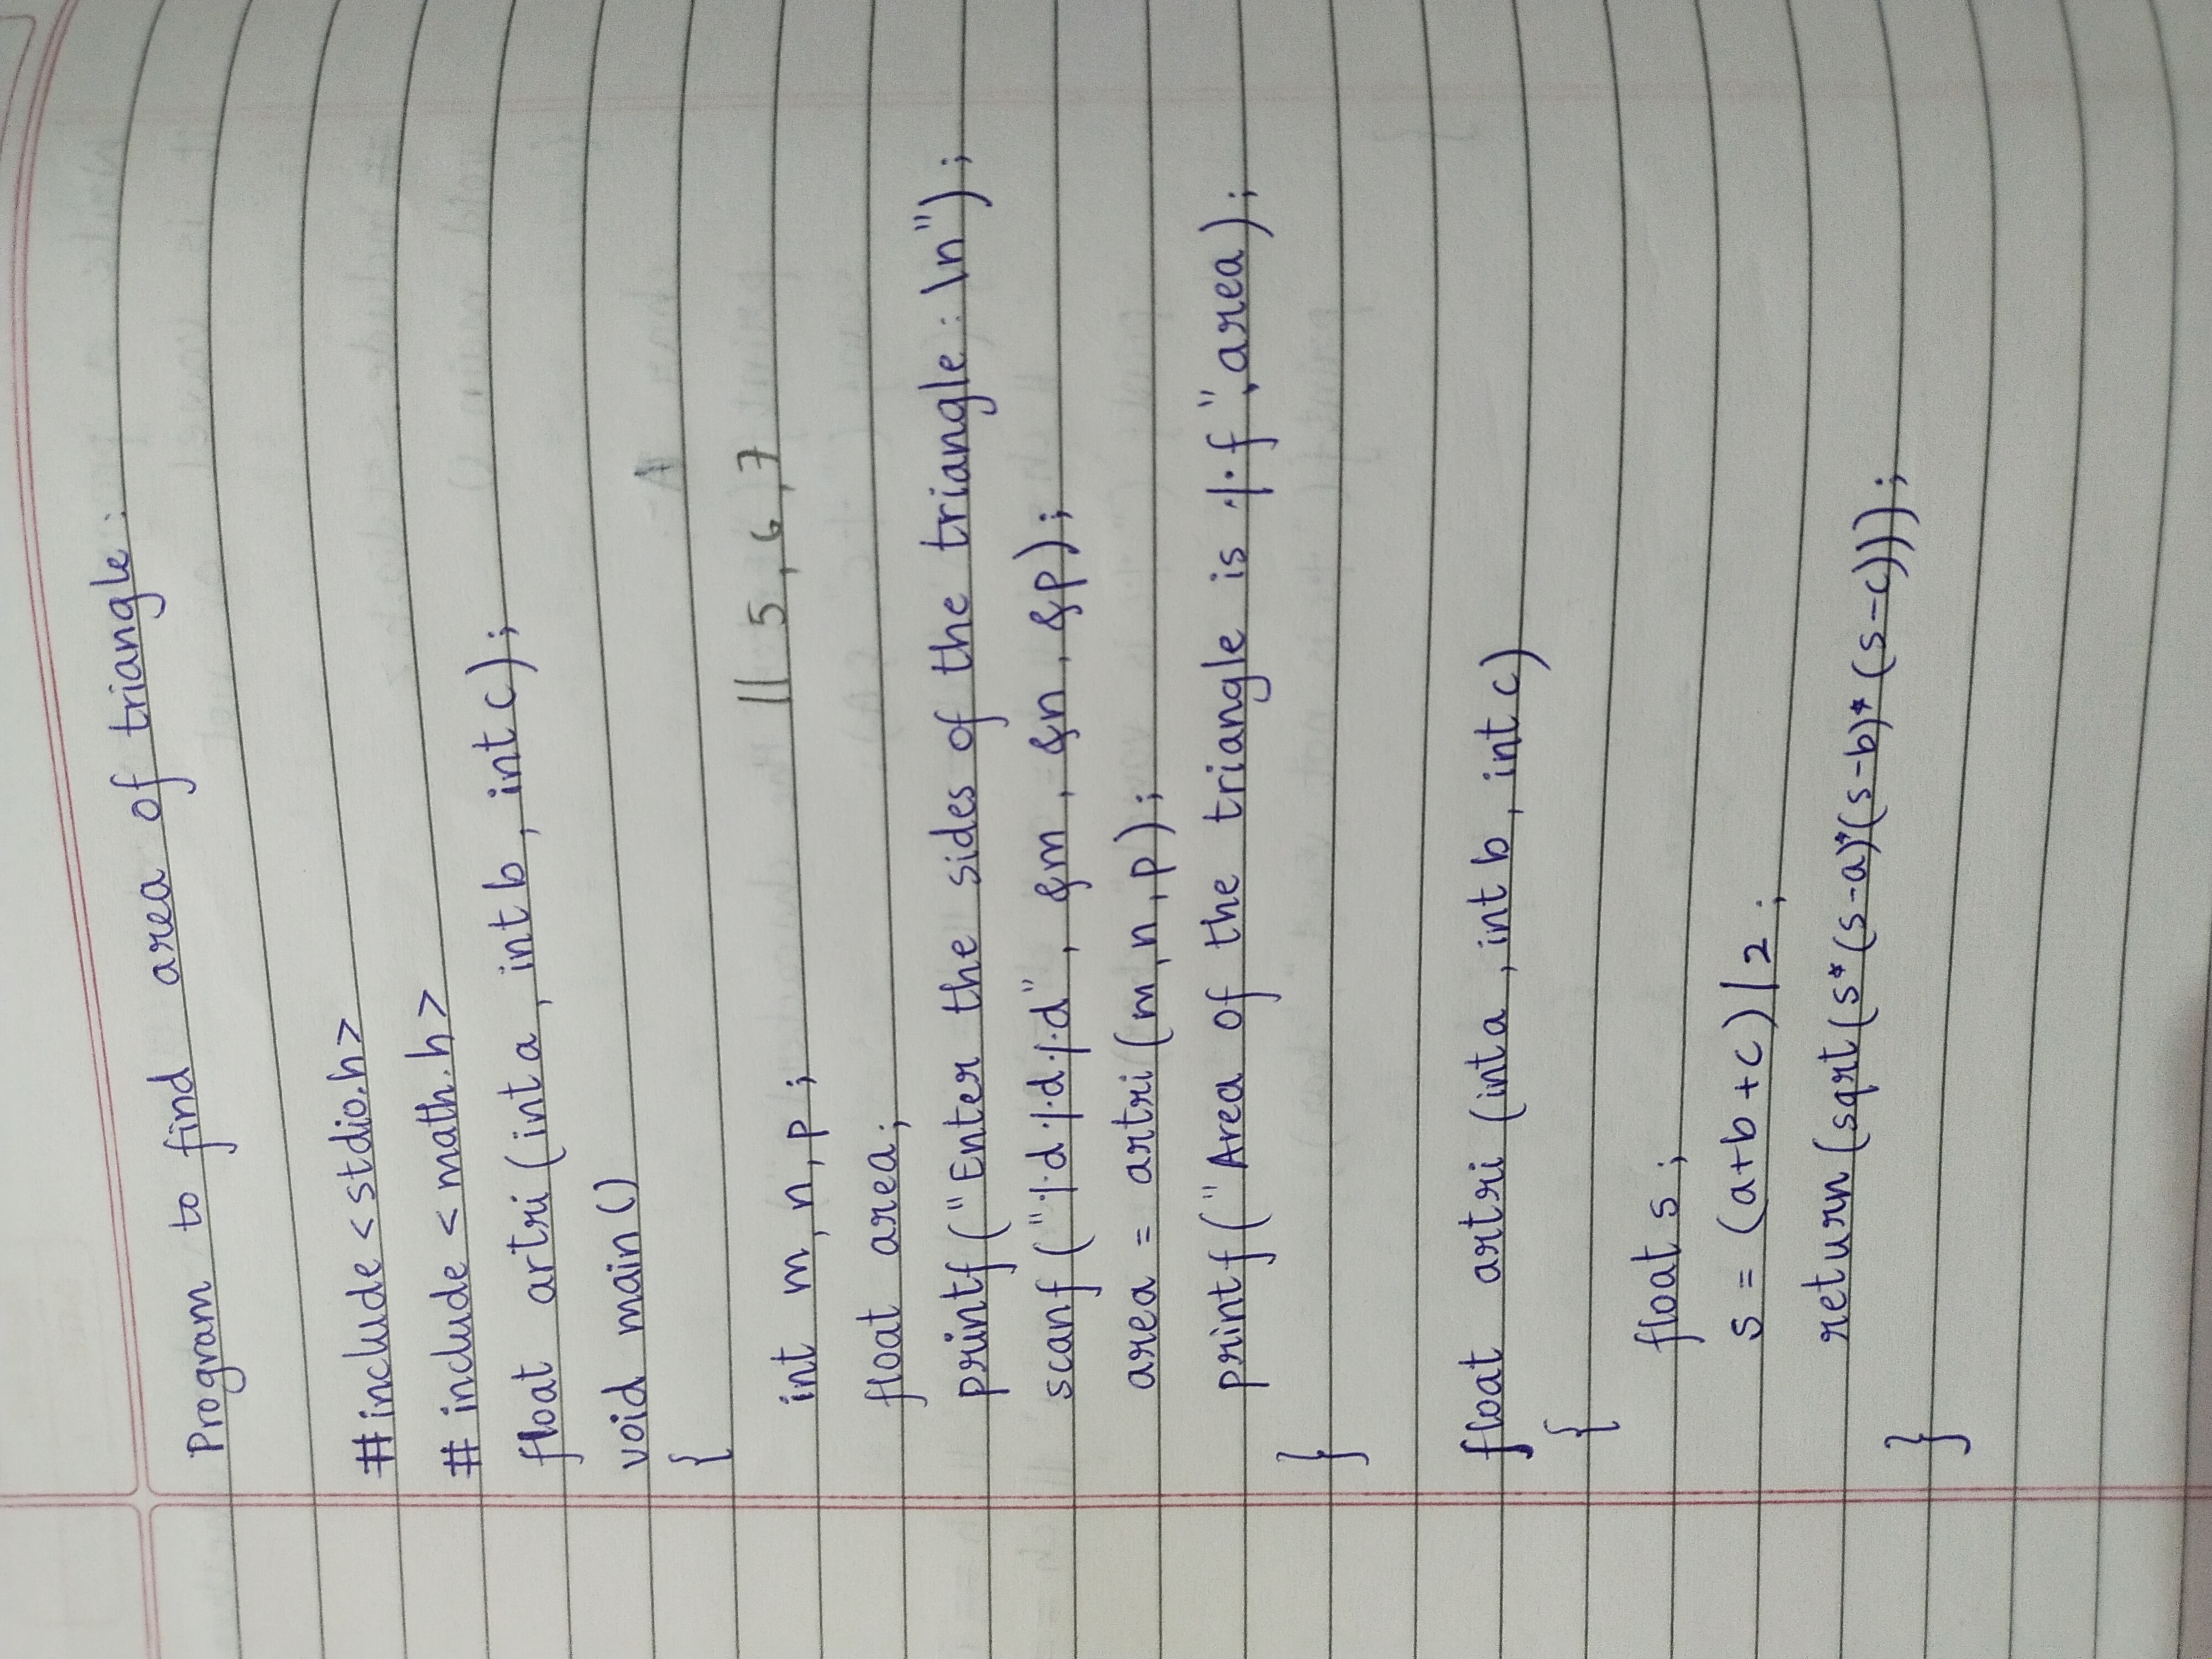 Program to find area of triangle:
#include <stdio.h>
# include <math.h>
float artri (int a, int b, int c);
void main ()
{
int m, n, p; // 5, 6, 7
float area;
printf ("Enter the sides of the triangle: \n");
scanf ("%d%d%d", &m, &n, &p);
area = artri (m, n, p);
printf ("Area of the triangle is %f", area);
}
float artri (int a, int b, int c)
{
float s;
s = (a+b+c)/2;
return (sqrt (s*(s-a)*(s-b)*(s-c)));
}